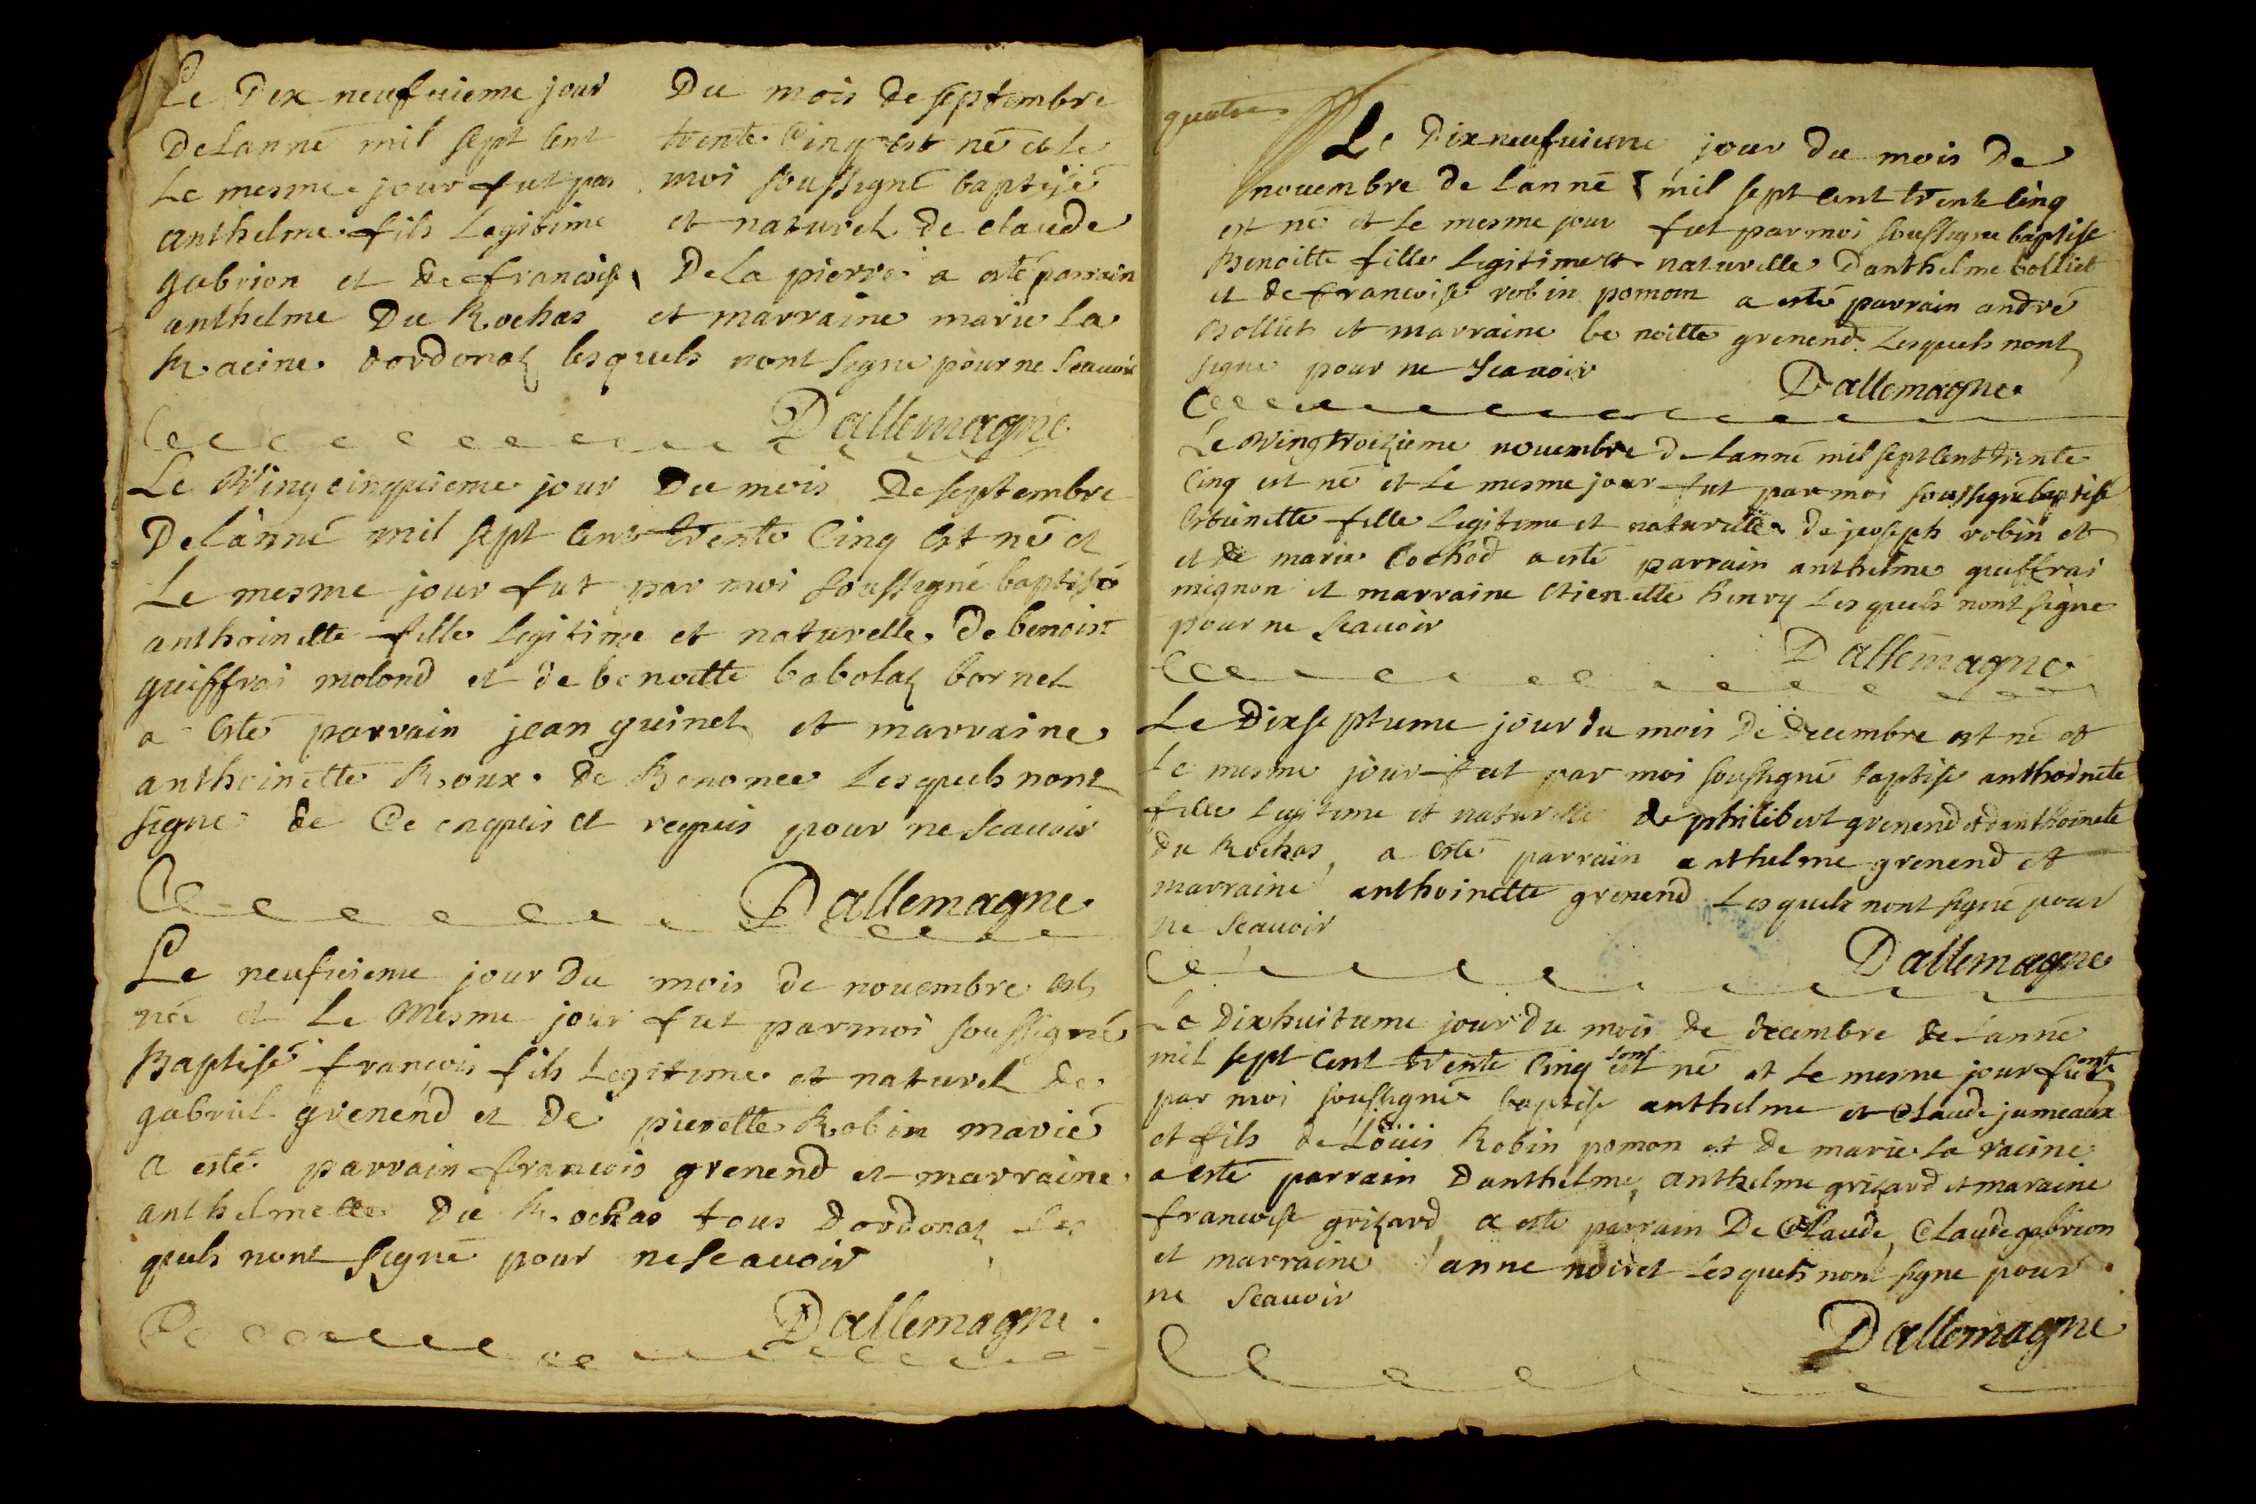 Le Dix neufuieme jour Du mois de septembre
De Lanné mil sept cent trente Cinq est né et le
Le mesme jour fut par moi soussigné baptisé
anthelme fils Legitime et naturel de claude
gabrion et de francoise De La pierre a esté parrain
anthelme Du Rochas et marraine marie La
Racine dordonaz lesquels nont signe pour ne scauoir
Dallemagne
Le Vingcinquieme jour Du mois De septembre
De Lanné mil sept cent trente Cinq est né et
Le mesme jour fut par moi soussigné baptisé
anthoinette fille legitime et naturelle De benoist
guiffrai molond et de benoitte babolaz bornet
a esté parrain jean guinet et marraine
anthoinette Roux de Benonce Lesquels nont
signe de Ce enquis et requis pour ne scauoir
Dallemagne
Le neufuieme jour Du mois de nouembre est
né et Le Mesme jour fut par moi soussigné
Baptisé françois fils Legitime et naturel de
gabriel grenend et De pierette Robin marié
a esté parrain francois grenend et marraine
anthelmette Du Rochas tous Dordonaz les
quels nont signé pour ne scauoir
Dallemagne
quatre
Le Dixneufuieme jour du mois De
nouembre de Lanné mil sept cent trente cinq
est né et le mesme jour fut par moi soussigne baptise
Benoitte fille Legitime et naturelle Danthelme bolliet
et de francoise robin pomon a esté parrain andré
Bolliet et marraine benoitte grenend Lesquels nont
signe pour ne scauoir
Dallemagne
Le vingtroizieme nouembre de Lanné mil sept Cent trente
Cinq est né et Le mesme jour fut par moi soussigné baptisé
Etienette fille Legitime et naturelle de jeoseph robin et
et de marie Cochod a esté parrain anthelme guiffrai
mignon et marraine Etienette henry Lesquels nont signe
pour ne scauoir
Dallemagne
Le Dixseptieme jour du mois De Decembre est né et
Le mesme jour fut par moi soussigné baptise anthoinete
fille Legitime et naturelle de philibert grenend et danthoinete
du Rochas, a esté parrain anthelme grenend et
marraine anthoinette grenend Lesquels nont signé pour
ne scauoir
Dallemagne
Le Dixhuitieme jour du mois de decembre de Lanné
mil sept cent trente Cinq sont né et Le mesme jour furent
par moi soussigné baptise anthelme et Claude jumeaux
et fils de Loüis Robin pomon et de marie La racine
a esté parrain Danthelme, anthelme grizard et maraine
francoise grizard, a esté parrain De Claude, Claude gabrion
et marraine anne noiret Lesquels nont signe pour
ne scauoir
Dallemagne